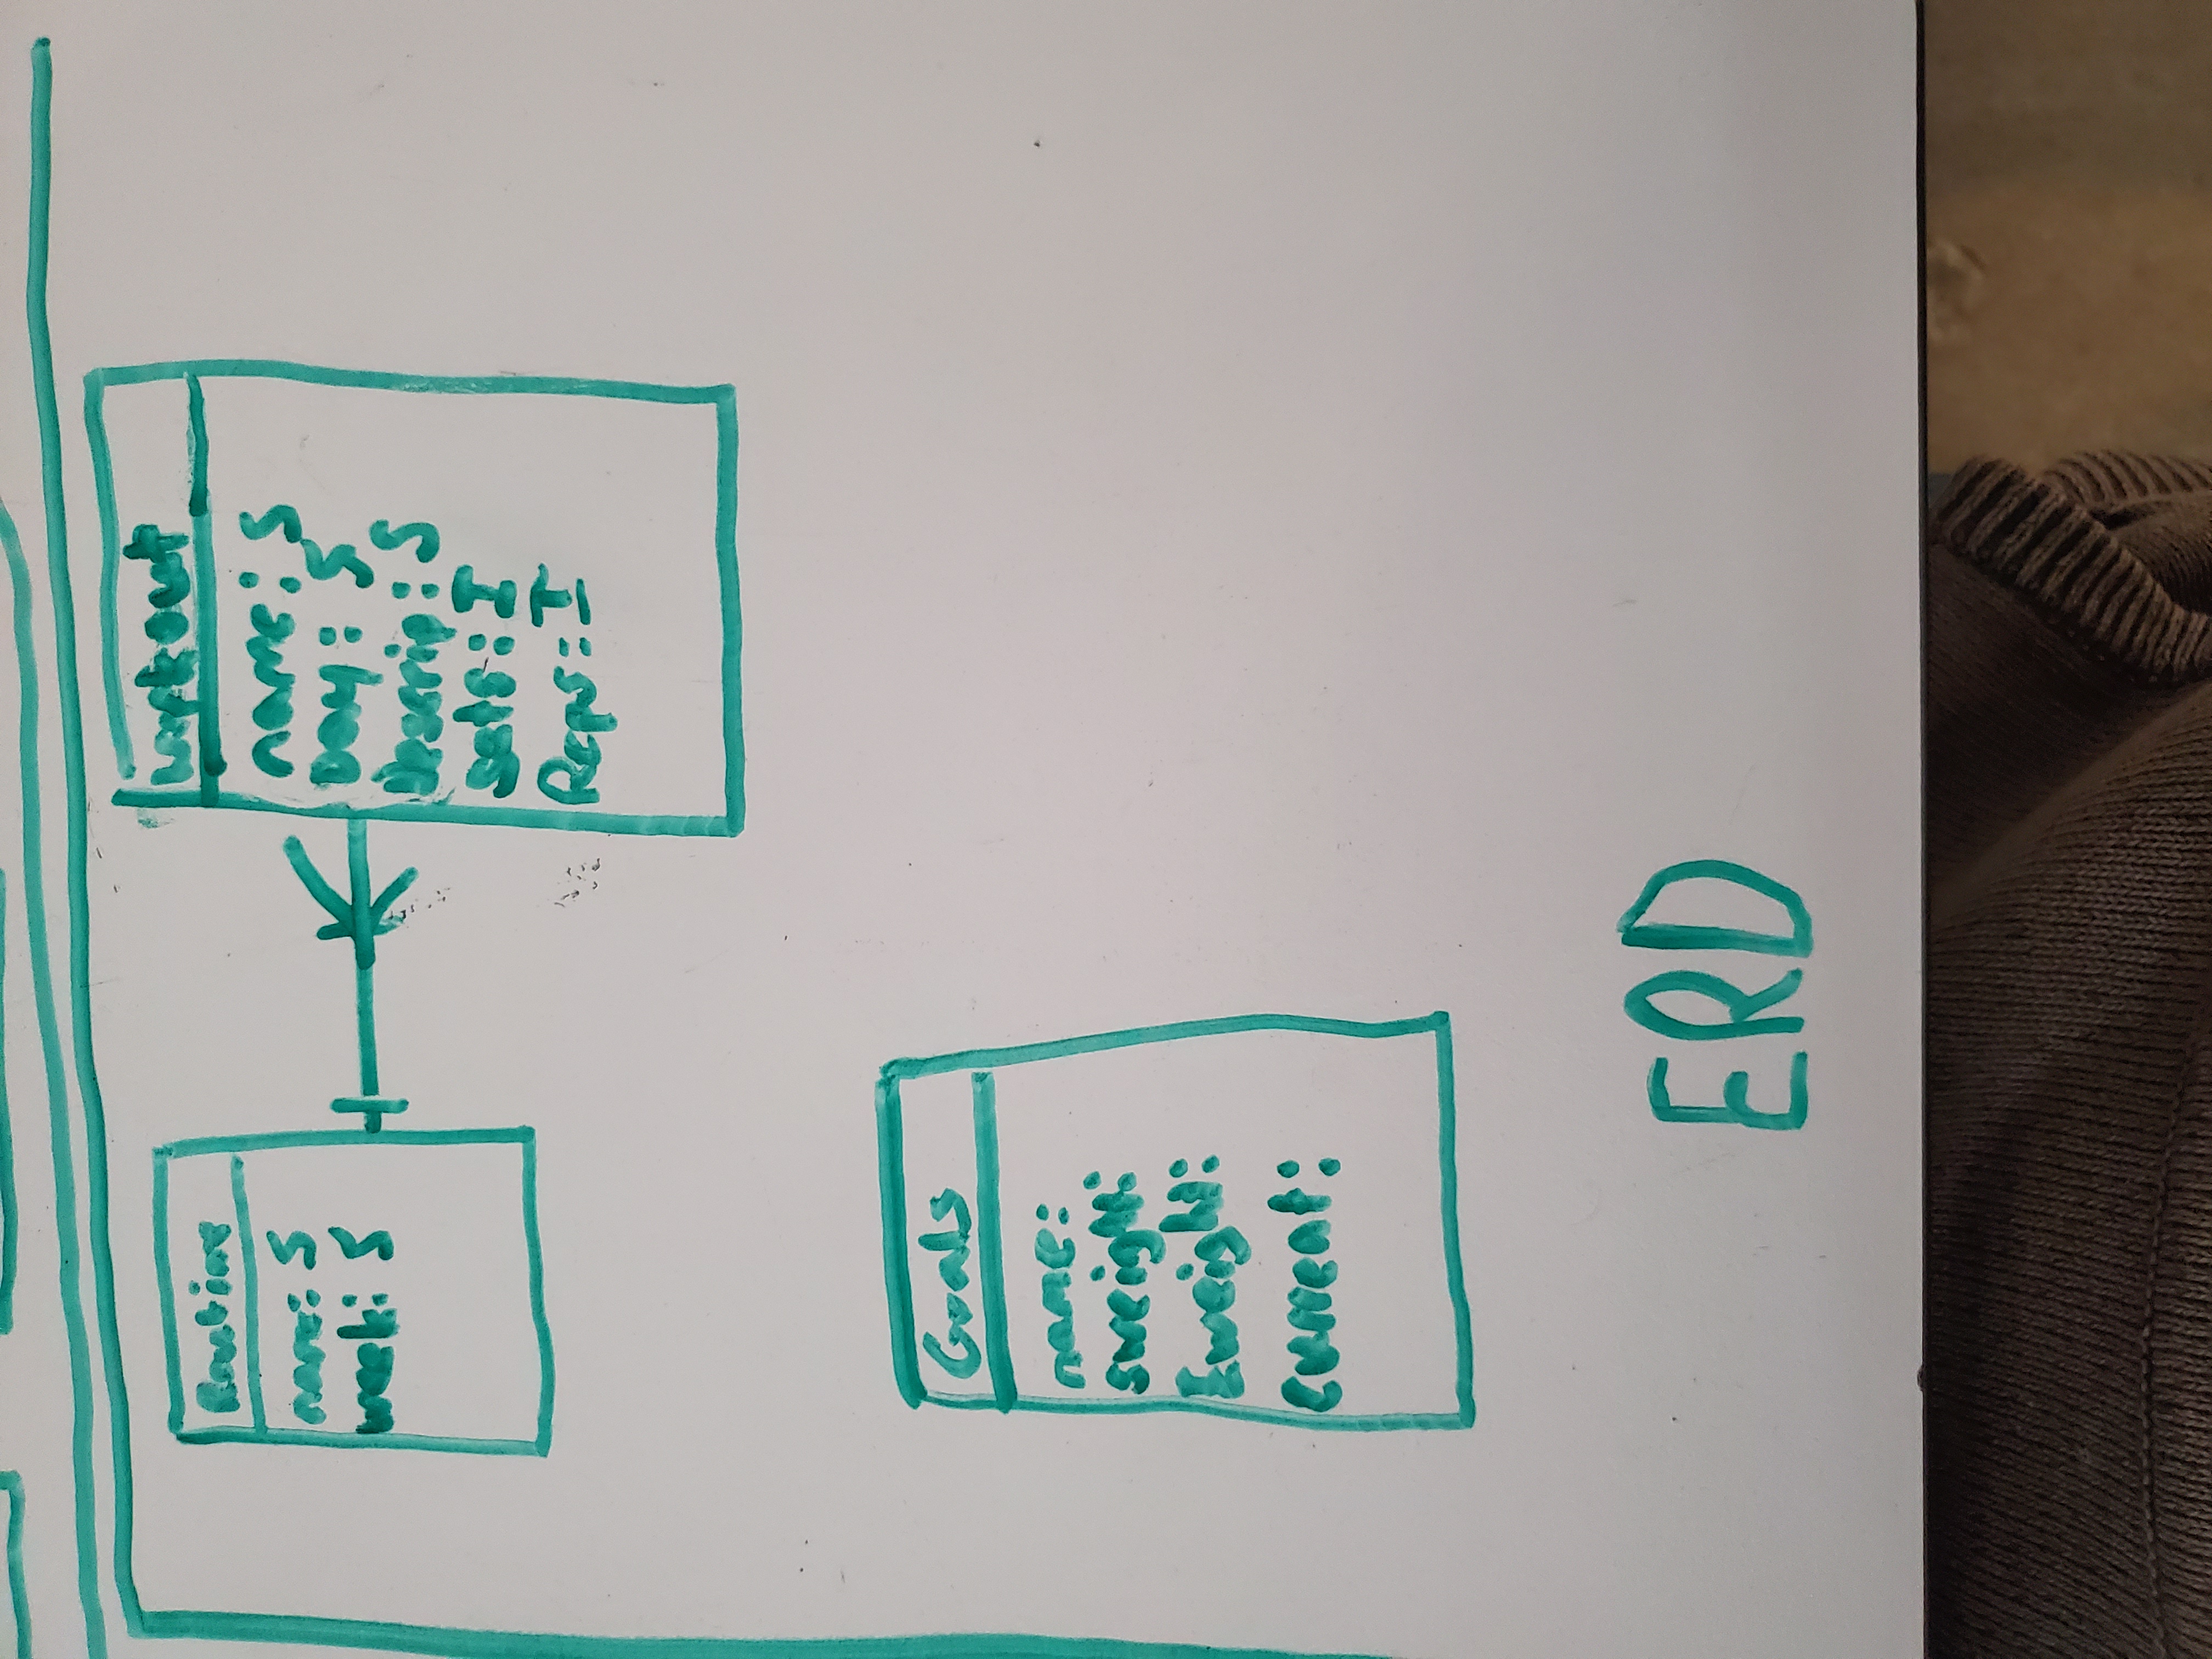 Routine
name: S
week: S
workout
name: S
Day: S
Descrip: S
sets: I
Reps: I
Goals
name:
sweight:
Eweight:
current:
ERD